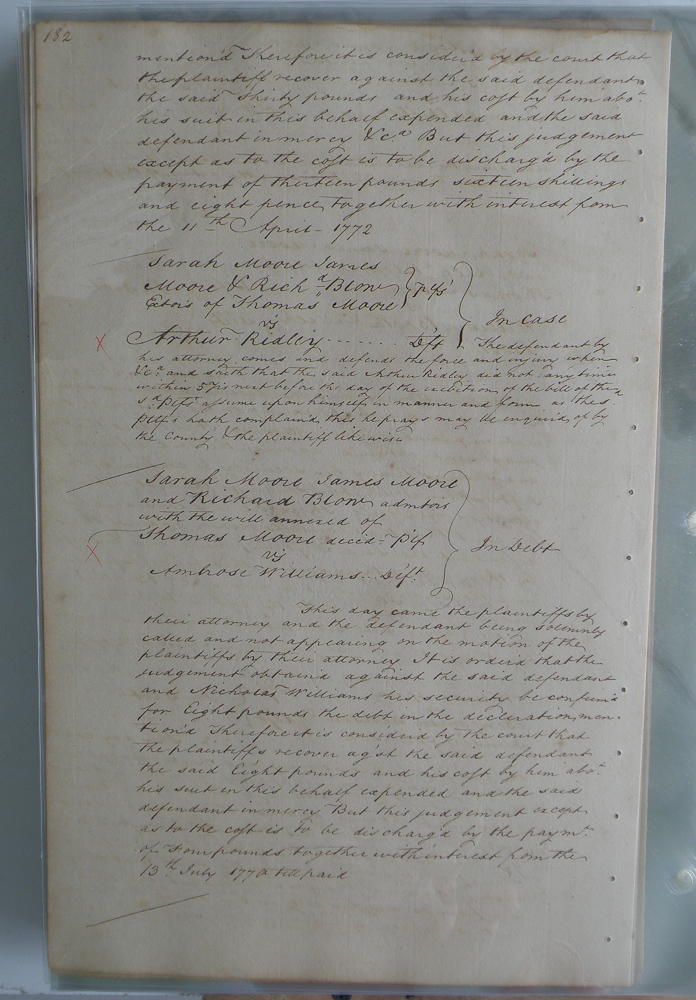 182
mention'd Therefore it is consider'd by the court that
the plaintiff recover against the said defendant
the said Thirty pounds and his cost by him abo.t
his suit in this behalf expended and the said
defendant in mercy &c.a But this judgement
except as to the cost is to be discharg'd by the
payment of thirteen pounds sixteen shillings
and eight pence together with interest from
the 11th April - 1772
Sarah Moore James
Moore & Rich.d Blow
Exõrs of Thomas Moore } Pltfs
vs
In Case
Arthur Ridley ....... Dft. The defendant by
his attorney comes and defends the force and injury when
&c.a and saith that the said Arthur Ridley did not any time
within 5 y.rs next before the day of the exibition of the bill of the
s.d Pltfs assume upon himself in manner and form as the s.d
Pltfs hath complain'd, this he prays may be enquired of by
the County & the plaintiff likewise
Sarah Moore James Moore
and Richard Blow admtors
with the will annexed of
Thomas Moore dece'd - Plf
vs
In Debt
Ambrose Williams... Dft.
This day came the plaintiffs by
their attorney and the defendant being solemnly
called and not appearing on the motion of the
plaintiffs by their attorney It is order'd that the
judgement obtain'd against the said defendant
and Nicholas Williams his security be confirm'd
for Eight pounds the debt in the declaration men-
tion'd Therefore it is consider'd by the court that
the plaintiffs recover ag'st the said defendant
the said Eight pounds and his cost by him abo.t
his suit in this behalf expended and the said
defendant in mercy But this judgement except
as to the cost is to be discharg'd by the paym.t
of Four pounds together with interest from the
13th July 1770 till paid